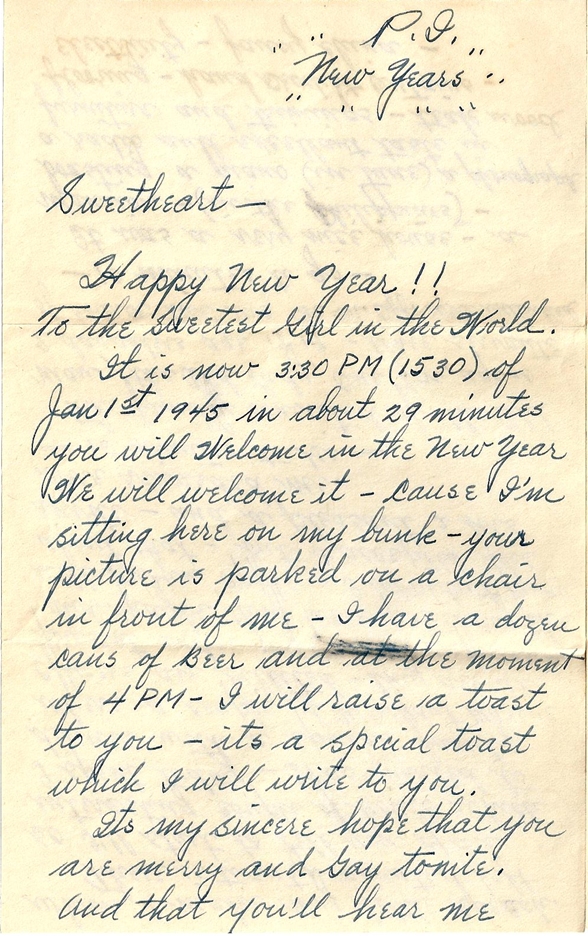 P.I.
New Years
Sweetheart —
Happy New Year !!
To the sweetest Girl in the World.
It is now 3:30 PM (1530) of
Jan 1st 1945 in about 29 minutes
you will Welcome in the New Year
We will welcome it - cause I'm
sitting here on my bunk - your
picture is parked on a chair
in front of me - I have a dozen
cans of Beer and at the moment
of 4 PM - I will raise a toast
to you - its a special toast
which I will write to you.
Its my sincere hope that you
are merry and Gay tonite.
And that you'll hear me